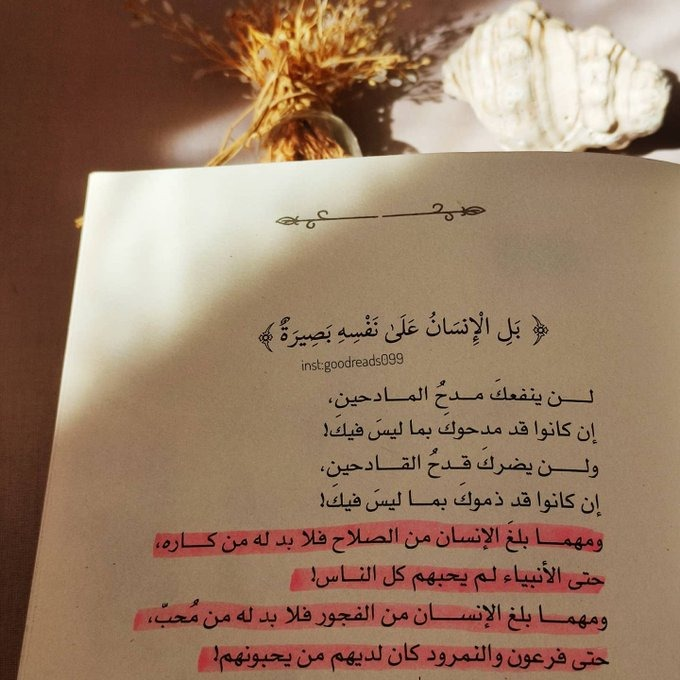 ﴿ بَلِ الْإِنسَانُ عَلَىٰ نَفْسِهِ بَصِيرَةٌ ﴾
inst:goodreads099
لـن ينفعكَ مـدحُ المـادحين،
إن كانوا قد مدحوكَ بما ليسَ فيكَ!
ولـن يضركَ قـدحُ القـادحين،
إن كانوا قد ذموكَ بمـا ليسَ فيكَ!
ومهمـا بلغَ الإنسان من الصلاح فلا بد له من كـاره،
حتى الأنبياء لم يحبهم كل الناس!
ومهمـا بلغ الإنسـان من الفجور فلا بد له من مُحبّ،
حتى فرعون والنمرود كان لديهم من يحبونهم!